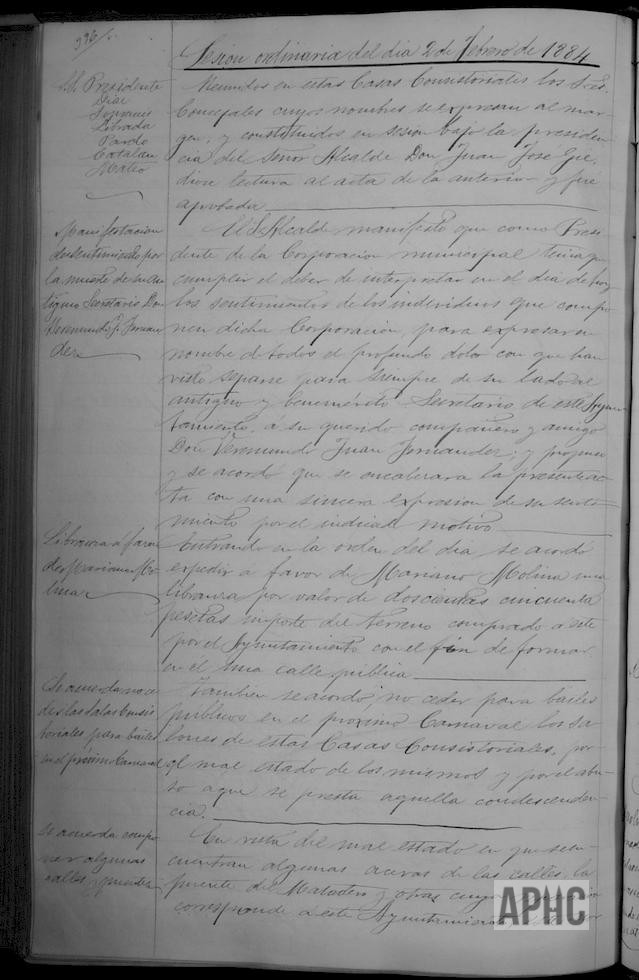 396
Sesion ordinaria del dia 2 de Febrero de 1884
S.S. Presidente
Librada
Pardo
Catalan
Mateo
Reunidos en estas Casas Consistoriales los Sres
Concejales cuyos nombres se expresan al mar-
gen, y constituidos en sesion bajo la presiden-
cia del Señor Alcalde Don Juan José Gil,
diose lectura al acta de la anterior y fué
aprobada
Manifestacion
de sentimiento por
la muerte de su an-
tiguo Secretario Don
Veremundo J. Fernan-
dez
El S. Alcalde manifestó que como Presi-
dente de la Corporacion municipal tenia que
cumplir el deber de interpretar en el dia de hoy
los sentimientos de los individuos que compo-
nen dicha Corporacion, para expresar en
nombre de todos el profundo dolor con que han
visto separse para siempre de su lado al
antiguo y benemérito Secretario de este Ayun-
tamiento, á su querido compañero y amigo
Don Veremundo Juan Fernandez; y propuso
y se acordó que se encabezara la presente ac-
ta con una sincera expresion de su senti-
miento por el indicado motivo
Libranza á favor
de Mariano Mo-
lina
Entrando en la orden del dia se acordó
expedir á favor de Mariano Molina una
libranza por valor de doscientas cincuenta
pesetas importe del terreno comprado a este
por el Ayuntamiento con el fin de formar
en el una calle publica
Se acuerda no ce-
der las salas Consis-
toriales para bailes
en el próximo Carnaval
Tambien se acordó, no ceder para bailes
publicos en el proximo Carnaval los sa-
lones de estas Casas Consistoriales, por
el mal estado de los mismos y por el abu-
so a que se presta aquella condescenden-
cia.
Se acuerda compo-
ner algunas
calles y puentes
En vista del mal estado en que se en-
cuentran algunas aceras de las calles, la
puente del Matadero y otras cuya
corresponde a este Ayuntamiento
APHC